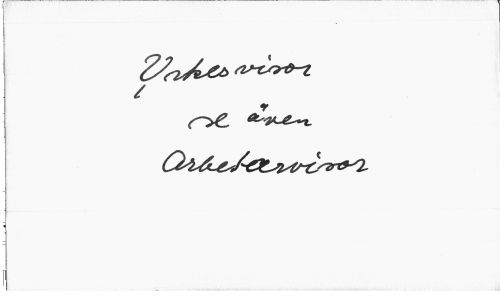 Yrkesvisor
se även
Arbetarvisor